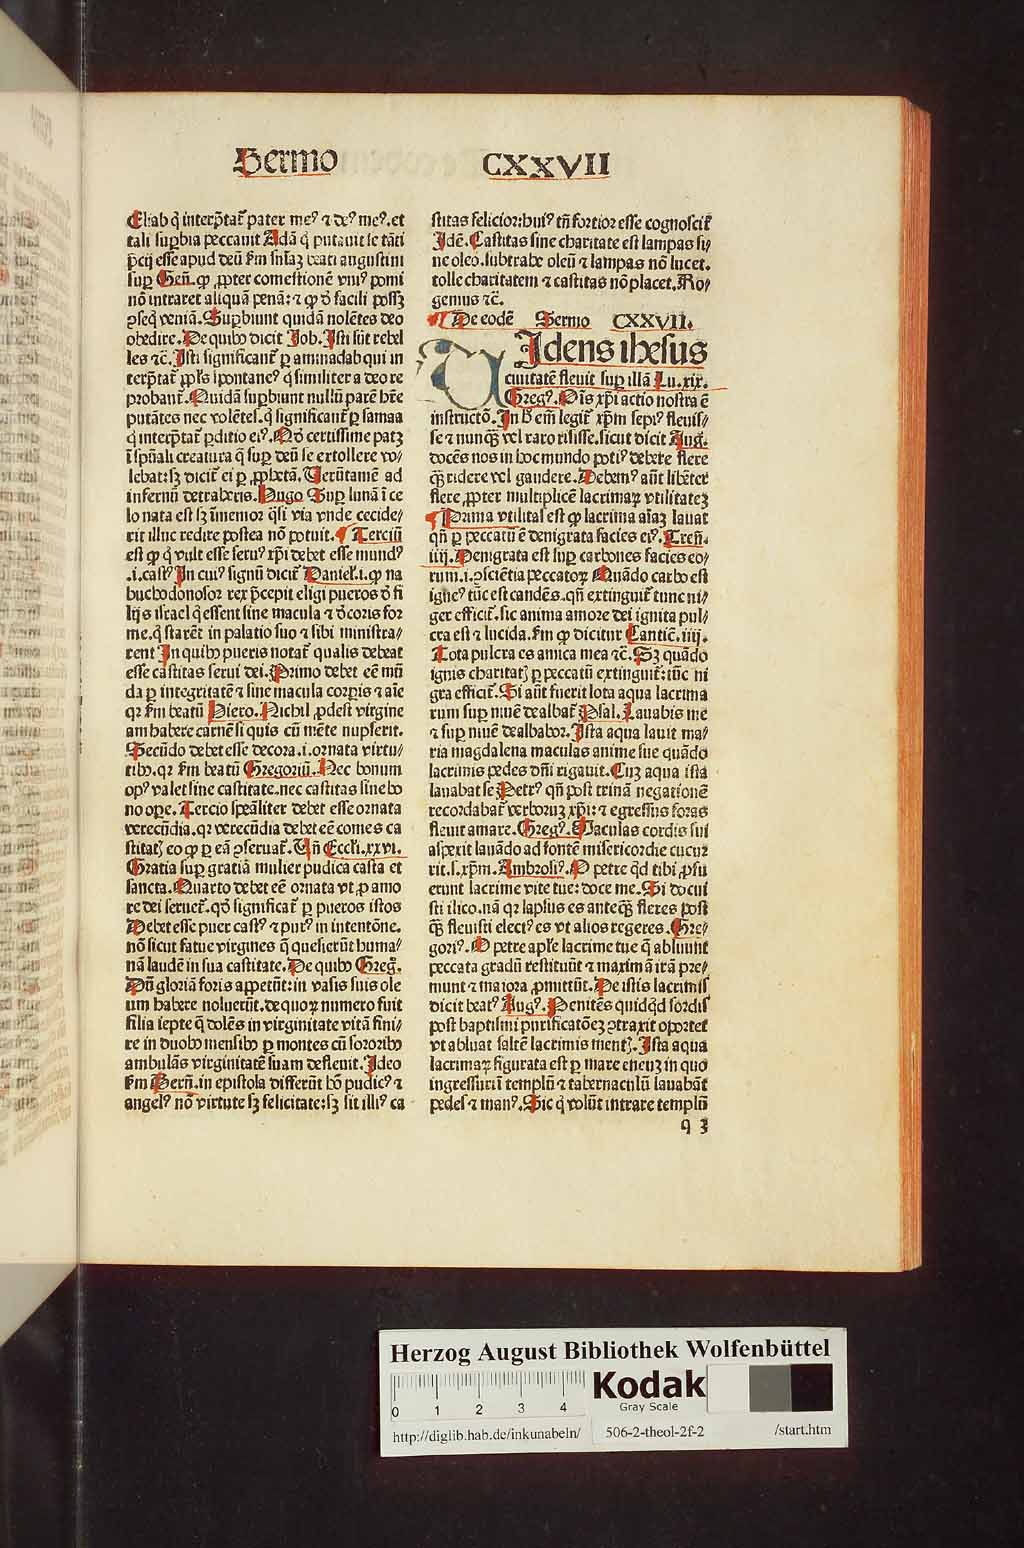 Sermo CXXVII
Eliab q̇ interp̃tat᷒ pater me⁹ ⁊ de⁹ me⁹. et
tali supbia peccauit Adā q̇ putauit se tāti
p̃cij esse apud deū s̃m snīaꝫ beati augustini
sup Geñ. ꝙ ꝓpter comestionē vni⁹ pomi
nō intraret aliquā penā: ⁊ ꝙ d̓ facili possꝫ
ꝯseq̇ veniā. Supbiunt quidā nolētes deo
obedire. De quibꝰ dicit Iob. Isti sūt rebel
les ⁊c̄. Isti significant᷒ ꝑ aminadab qui in
terp̃tat᷒ ppl̃s spontane⁹ q̇ similiter a deo re
probant᷒. Quidā supbiunt nullū parē hr̄e
putātes nec volētes. q̇ significant᷒ ꝑ samaa
q̇ interp̃tat᷒ ꝑditio ei⁹. Nō certissime patꝫ
ī sp̄uali creatura q̇ sup deū se extollere vo⸗
lebat: sꝫ dicit᷒ ei ꝑ ꝓphetā. Uerūtamē ad
infernū detraheris. Hugo Sup lunā ī ce
lo nata est sꝫ īmemor q̄si via vnde cecide⸗
rit illuc redire postea nō potuit. ¶ Terciū
est ꝙ q̇ vult esse seru⁹ xp̄i debet esse mund⁹
.i. cast⁹ In cui⁹ signū dicit᷒ Daniel᷒. i. ꝙ na
buchodonosor rex p̃cepit eligi pueros d̓ fi
lijs israel q̇ essent sine macula ⁊ d̓coris for
me. q̇ starēt in palatio suo ⁊ sibi ministra⸗
rent In quibꝰ pueris notat᷒ qualis debeat
esse castitas serui dei. Primo debet eē mū
da ꝑ integritatē ⁊ sine macula corꝑis ⁊ aīe
qꝛ s̃m beatū Hiero. Nichil ꝓdest virgine
am habere carnē si quis cū mēte nupserit.
Secūdo debet esse decora. i. ornata virtu⸗
tibꝰ. qꝛ s̃m beatū Gregoriū. Nec bonum
op⁹ valet sine castitate. nec castitas sine bo
no oꝑe. Tercio speāliter debet esse ornata
verecūdia. qꝛ verecūdia debet eē comes ca
stitatꝭ eo ꝙ ꝑ eā ꝯseruat᷒. Uñ Eccli. xxvi.
Gratia sup gratiā mulier pudica casta et
sancta. Quarto debet eē ornata vt ꝓ amo
re dei seruet᷒. qd̓ significat᷒ ꝑ pueros istos
Debet esse puer cast⁹ ⁊ pur⁹ in intentōne.
nō sicut fatue virgines q̄ quesierūt huma⸗
nā laudē in sua castitate. De quibꝰ Greg̃.
Dū gloriā foris appetūt: in vasis suis ole
um habere noluerūt. de quoꝝ numero fuit
filia iepte q̄ volēs in virginitate vitā fini⸗
re in duobꝰ mensibꝰ ꝑ montes cū sororibꝰ
ambulās virginitatē suam defleuit. Ideo
s̃m Berñ. in epistola differūt hō pudic⁹ ⁊
angel⁹ nō virtute sꝫ felicitate: sꝫ sit illi⁹ ca
stitas felicior: hui⁹ tñ fortior esse cognoscit᷒
Idē. Castitas sine charitate est lampas si⸗
ne oleo. subtrahe oleū ⁊ lampas nō lucet.
tolle charitatem ⁊ castitas nō placet. Ro⸗
gemus ⁊c̄.
¶ De eodē Sermo CXXVII.
UIdens ihesus
ciuitatē fleuit sup illā Lu. xix.
Greg⁹. Dīs xp̄i actio nostra ē
instructō. In hͦ em̄ legit᷒ xp̄m sepi⁹ fleuis⸗
se ⁊ nunq̄ꝫ vel raro risisse. sicut dicit Aug.
docēs nos in hoc mundo poti⁹ debere flere
q̄ꝫ ridere vel gaudere. Debem⁹ aūt libēter
flere ꝓpter multiplicē lacrimaꝝ vtilitatēꝫ
¶ Prima vtilitas est ꝙ lacrima aīaꝫ lauat
qñ ꝑ peccatū ē denigrata facies ei⁹. Treñ.
iiij. Denigrata est sup carbones facies eo⸗
rum. i. ꝯsciētia peccatoꝝ Quādo carbo est
igne⁹ tūc est candēs. qñ extinguit᷒ tunc ni⸗
ger efficit᷒. sic anima amore dei ignita pul⸗
cra est ⁊ lucida. s̃m ꝙ dicitur Canticͥ. iiij.
Tota pulcra es amica mea ⁊c̄. Sꝫ quādo
ignis charitatꝭ ꝑ peccatū extinguit᷒: tūc ni
gra efficit᷒. Si aūt fuerit lota aqua lacrima
rum sup niuē dealbat᷒ Psal. Lauabis me
⁊ sup niuē dealbabor. Ista aqua lauit ma⸗
ria magdalena maculas anime sue quādo
lacrimis pedes dñi rigauit. Cuꝫ aqua ista
lauabat se Petr⁹ qñ post trinā negationē
recordabat᷒ verboruꝫ xp̄i: ⁊ egressus foras
fleuit amare. Greg⁹. Maculas cordis sui
asperit lauādo ad fontē misericordie cucur
rit. s. xp̄m. Ambrosi⁹. O petre qd̓ tibi ꝓfu
erunt lacrime vite tue: doce me. Si docui
sti ilico. nā qꝛ lapsus es anteq̄ꝫ fleres post
q̄ꝫ fleuisti elect⁹ es vt alios regeres. Gre⸗
gori⁹. O petre apl̄e lacrime tue q̄ abluunt
peccata gradū restituūt ⁊ maximā irā pre⸗
munt ⁊ maiora ꝓmittūt. De istis lacrimis
dicit beat⁹ Aug⁹. Penitēs quidq̇d sordis
post baptismi purificatōeꝫ ꝯtraxit oportet
vt abluat saltē lacrimis mentꝭ. Ista aqua
lacrimaꝝ figurata est ꝑ mare eneuꝫ in quo
ingressuri templū ⁊ tabernaculū lauabāt
pedes ⁊ man⁹. Sic q̇ volūt intrare templū
q 3
Herzog August Bibliothek Wolfenbüttel
Kodak
Gray Scale
0 1 2 3 4
http://diglib.hab.de/inkunabeln/ 506-2-theol-2f-2 /start.htm